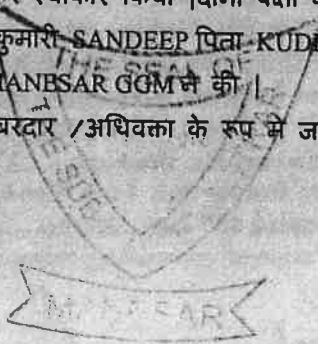 र स्वीकार किया |दोनो पक्षो
कुमारी SANDEEP पिता KUD
ANESAR GGM ने की |
बरदार /अधिवक्ता के रूप मे ज
THE SEAL OF
THE SUB
MANESAR